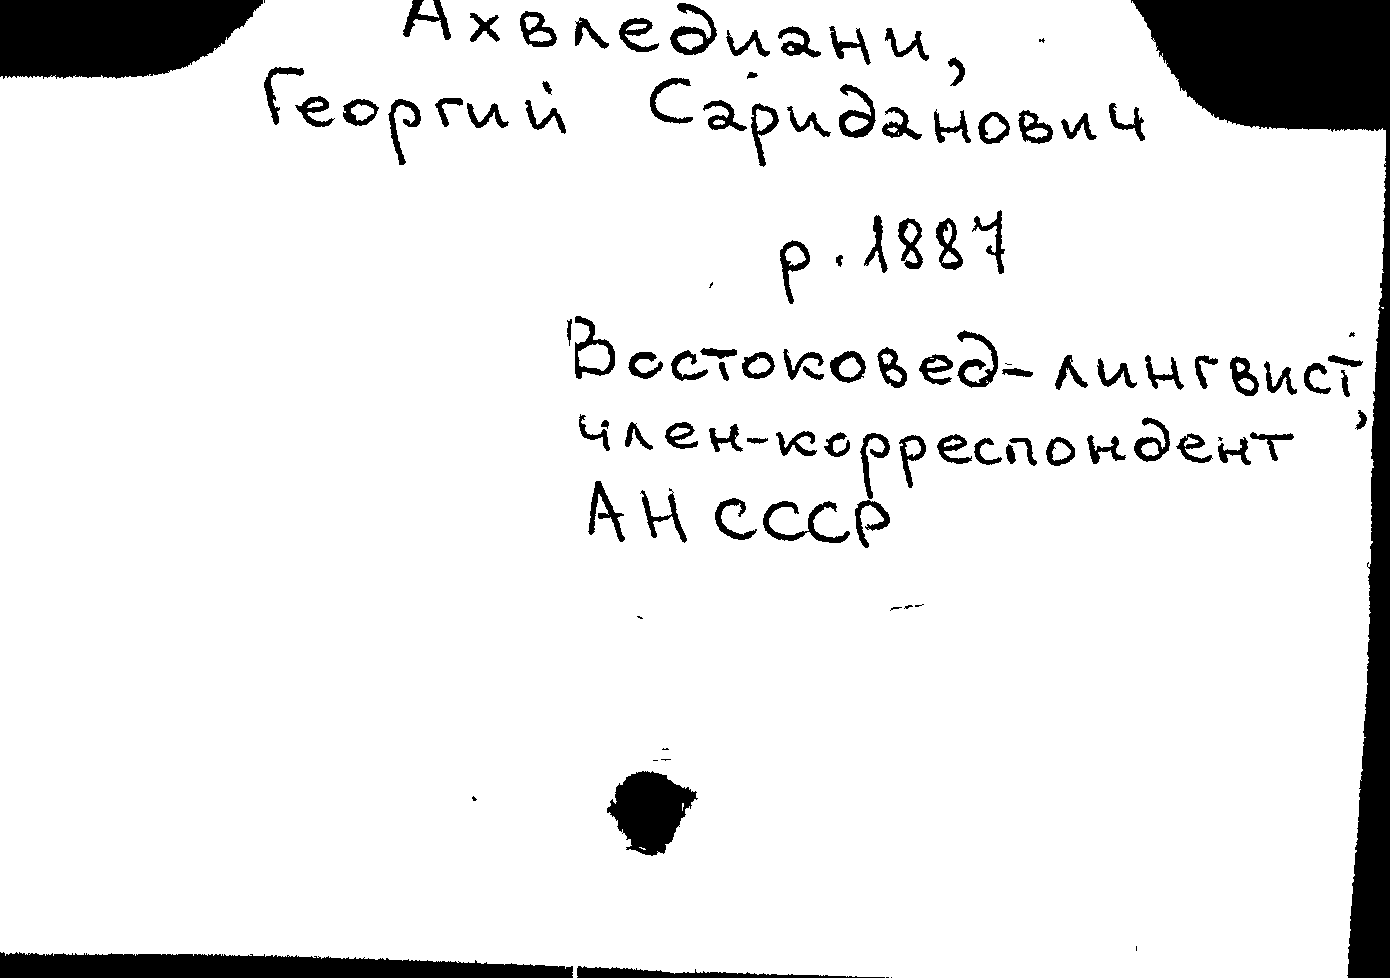 Ахвледиани,
Георгий Сариданович
р. 1887
Востоковед-лингвист,
член-корреспондент
АН СССР